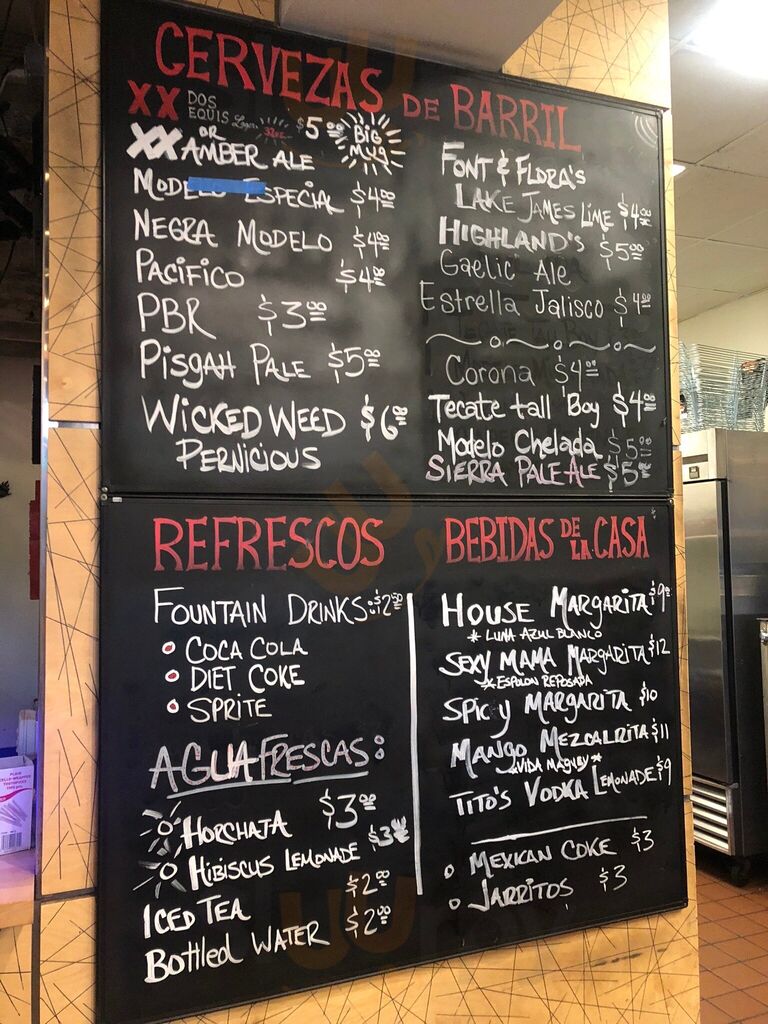 CERVEZAS DE BARRIL
XX DOS EQUIS Lager 32oz $5.00 BIG MUG
OR
XX AMBER ALE
MODELO ESPECIAL $4.00
NEGRA MODELO $4.00
PACIFICO $4.00
PBR $3.00
PISGAH PALE $5.00
WICKED WEED $6.00
PERNICIOUS
FONT & FLORA'S
LAKE JAMES LIME $4.00
HIGHLAND'S $5.00
GAELIC ALE
Estrella Jalisco $4.00
Corona $4.00
Tecate tall Boy $4.00
Modelo Chelada $5.00
SIERRA PALE ALE $5.00
REFRESCOS
FOUNTAIN DRINKS: $2.50
COCA COLA
DIET COKE
SPRITE
AGUA FRESCAS:
HORCHATA $3.00
HIBISCUS LEMONADE $3.00
ICED TEA $2.00
Bottled WATER $2.00
BEBIDAS DE LA CASA
HOUSE MARGARITA $9
* LUNA AZUL BLANCO
SEXY MAMA MARGARITA $12
* ESPOLON REPOSADA
SPICY MARGARITA $10
MANGO MEZCALRITA $11
*VIDA MAGUEY*
TITO'S VODKA LEMONADE $9
MEXICAN COKE $3
JARRITOS $3